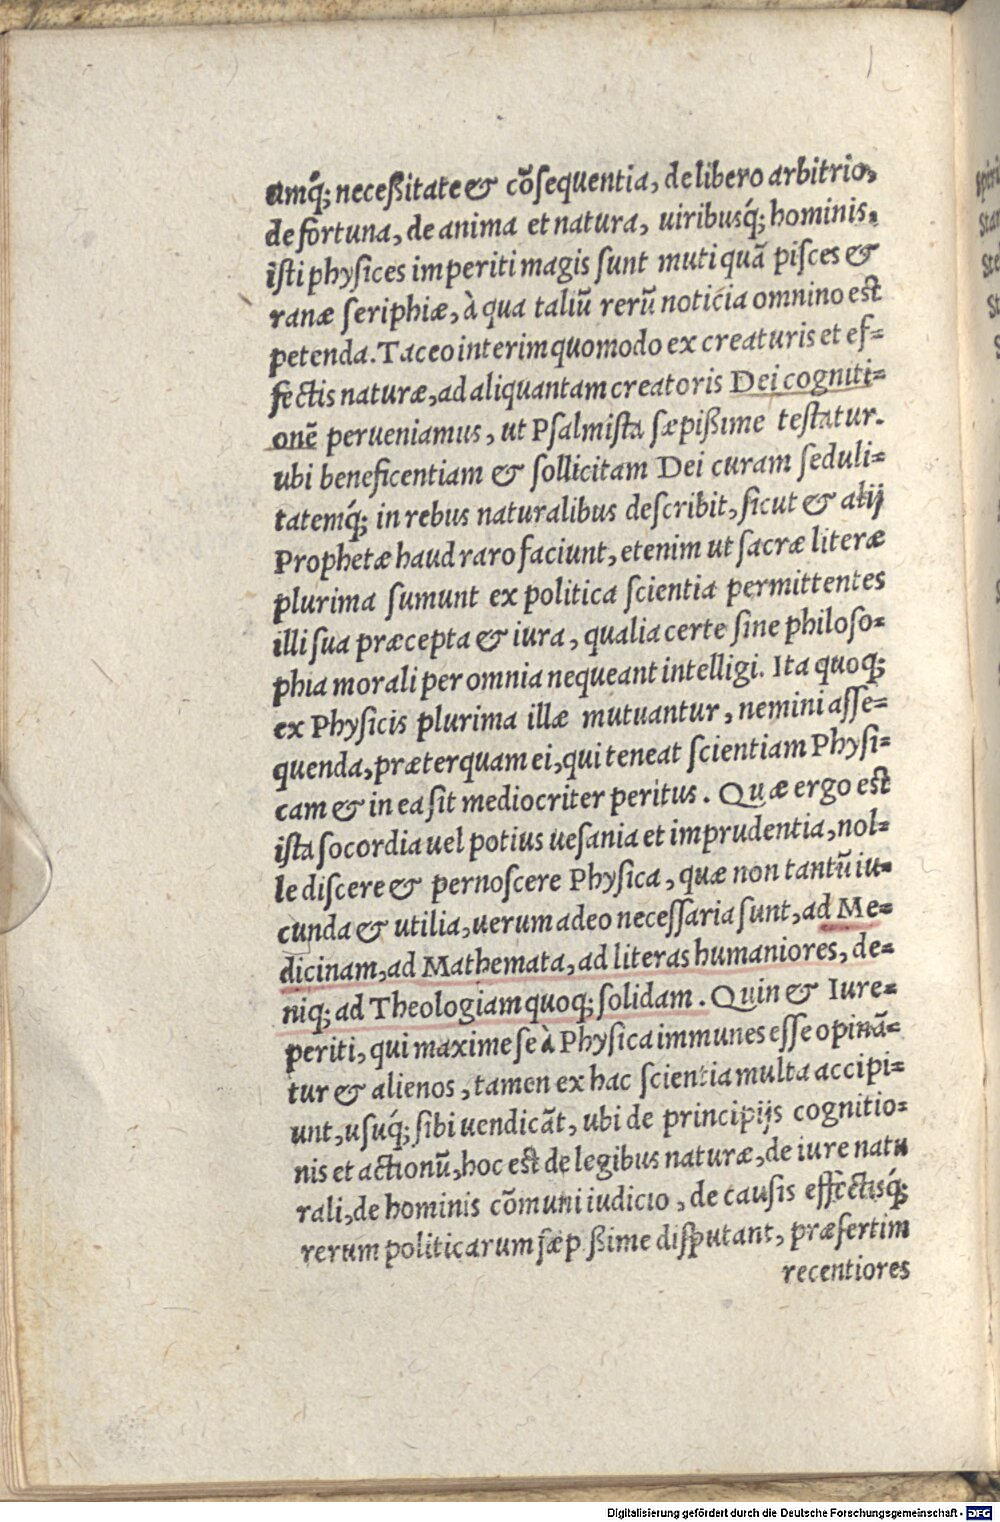 amq́; neceßitate & cõſequentia, de libero arbitrio,
de fortuna, de anima et natura, uiribusq́; hominis.
iſti phyſices imperiti magis ſunt muti quã piſces &
ranæ ſeriphiæ, à qua taliũ rerũ noticia omnino est
petenda. Taceo interim quomodo ex creaturis et ef=
fectis naturæ, ad aliquantam creatoris Dei cogniti=
onẽ perueniamus, ut Pſalmiſta ſæpißime teſtatur.
ubi beneficentiam & ſollicitam Dei curam ſeduli=
tatemq́; in rebus naturalibus deſcribit, ſicut & alij
Prophetæ haud raro faciunt, etenim ut ſacræ literæ
plurima ſumunt ex politica ſcientia permittentes
illi ſua præcepta & iura, qualia certe ſine philoſo=
phia morali per omnia nequeant intelligi. Ita quoq;
ex Phyſicis plurima illæ mutuantur, nemini aſſe=
quenda, præterquam ei, qui teneat ſcientiam Phyſi=
cam & in ea ſit mediocriter peritus. Quæ ergo est
iſta ſocordia uel potius ueſania et imprudentia, nol=
le diſcere & pernoſcere Phyſica, quæ non tantũ iu=
cunda & utilia, uerum adeo neceſſaria ſunt, ad Me=
dicinam, ad Mathemata, ad literas humaniores, de=
niq; ad Theologiam quoq; ſolidam. Quin & Iure=
periti, qui maxime ſe à Phyſica immunes eſſe opinã=
tur & alienos, tamen ex hac ſcientia multa accipi=
unt, uſuq́; ſibi uendicãt, ubi de principijs cognitio=
nis et actionũ, hoc est de legibus naturæ, de iure natu
rali, de hominis cõmuni iudicio, de cauſis effectisq́;
rerum politicarum ſæp ßime diſputant, præſertim
recentiores
Digitalisierung gefördert durch die Deutsche Forschungsgemeinschaft - DFG